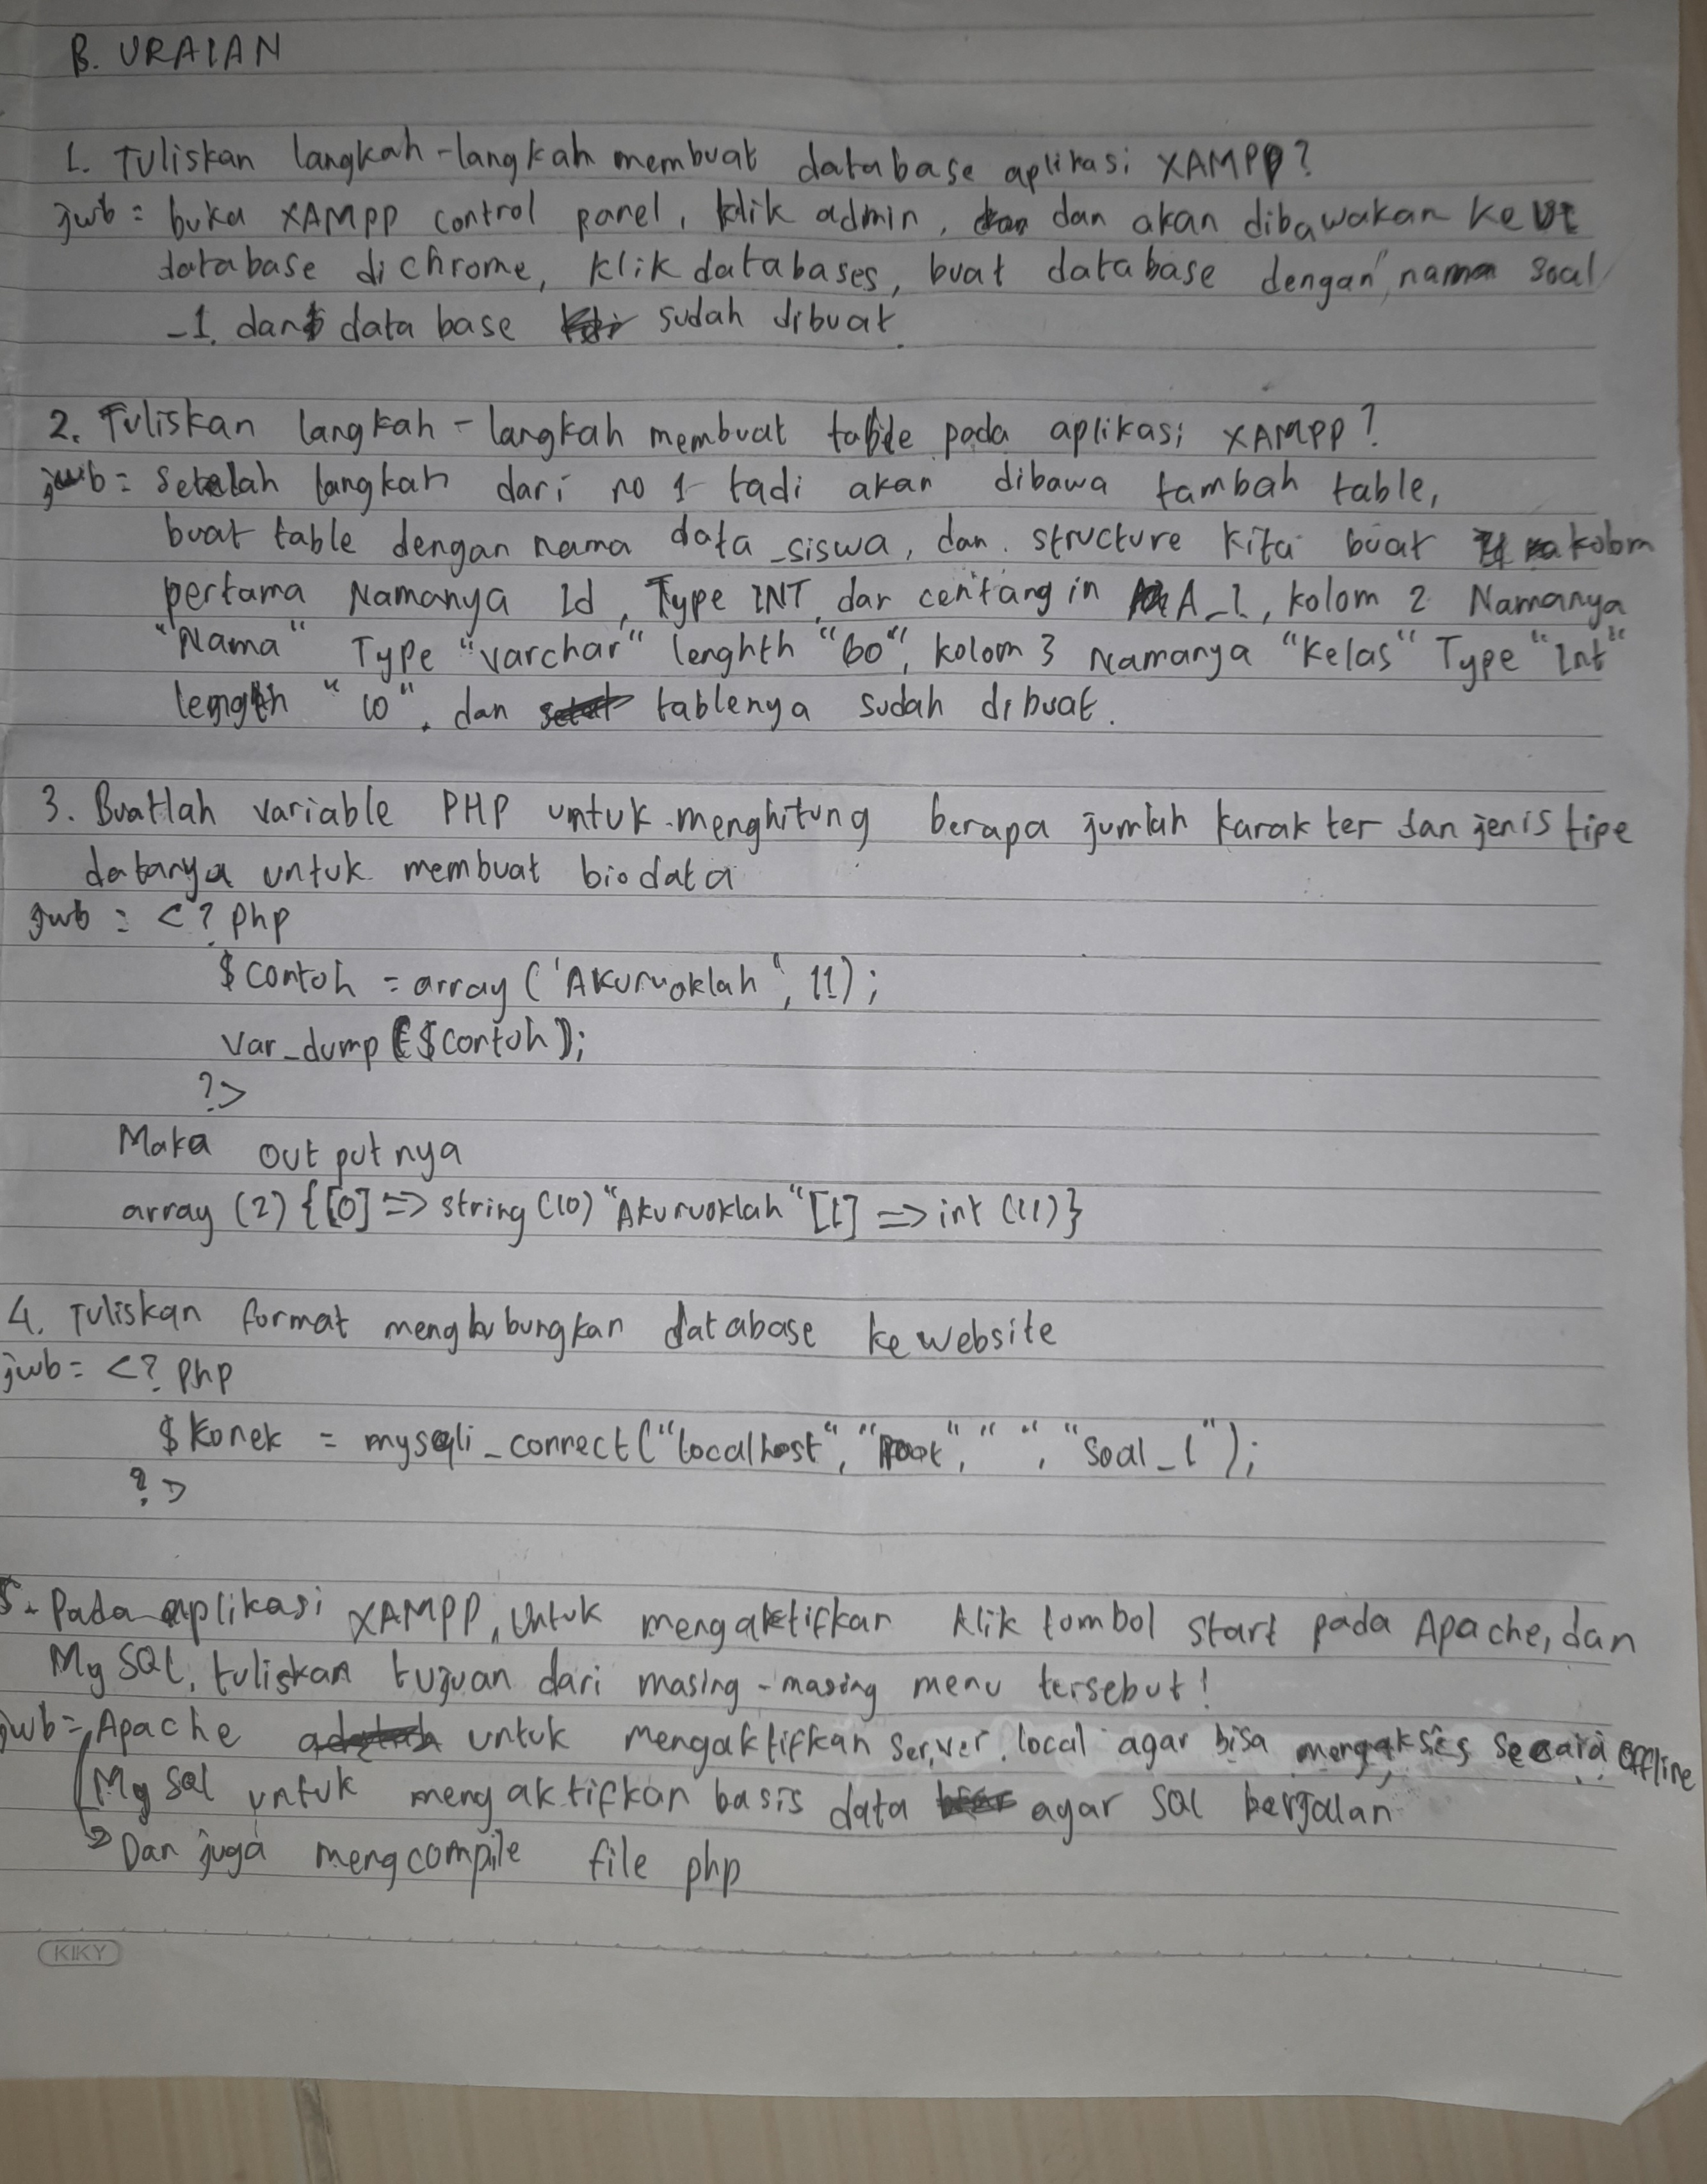 B. URAIAN
1. Tuliskan langkah-langkah membuat database aplikasi XAMPP?
jwb = buka XAMPP control panel, klik admin, dan akan dibawakan ke UI
database di chrome, klik databases, buat database dengan nama soal
_1. dan data base sudah dibuat.
2. Tuliskan langkah-langkah membuat table pada aplikasi XAMPP?
jwb = setelah langkah dari no 1 tadi akan dibawa tambah table,
buat table dengan nama data_siswa, dan. structure kita buat kolom
pertama Namanya Id, Type INT, dan centang in A_I, kolom 2 Namanya
"Nama" Type "varchar" lenghth "60", kolom 3 Namanya "Kelas" Type "Int"
length "10". dan tablenya sudah dibuat.
3. Buatlah variable PHP untuk menghitung berapa jumlah karakter dan jenis tipe
datanya untuk membuat biodata
jwb = <? php
$contoh = array ('Akuruoklah', 11);
var_dump($contoh);
?>
Maka out putnya
array (2) {[0] => string (10) "Akuruoklah" [1] => int (11)}
4. Tuliskan format menghubungkan database ke website
jwb = <? php
$konek = mysqli_connect("localhost", "root", " ", "Soal_1");
?>
5. Pada aplikasi XAMPP, untuk mengaktifkan klik tombol start pada Apache, dan
My SQL, tuliskan tujuan dari masing-masing menu tersebut!
jwb = Apache untuk mengaktifkan server local agar bisa mengakses secara offline
My Sql untuk mengaktifkan basis data agar SQL berjalan
Dan juga mengcompile file php
KIKY